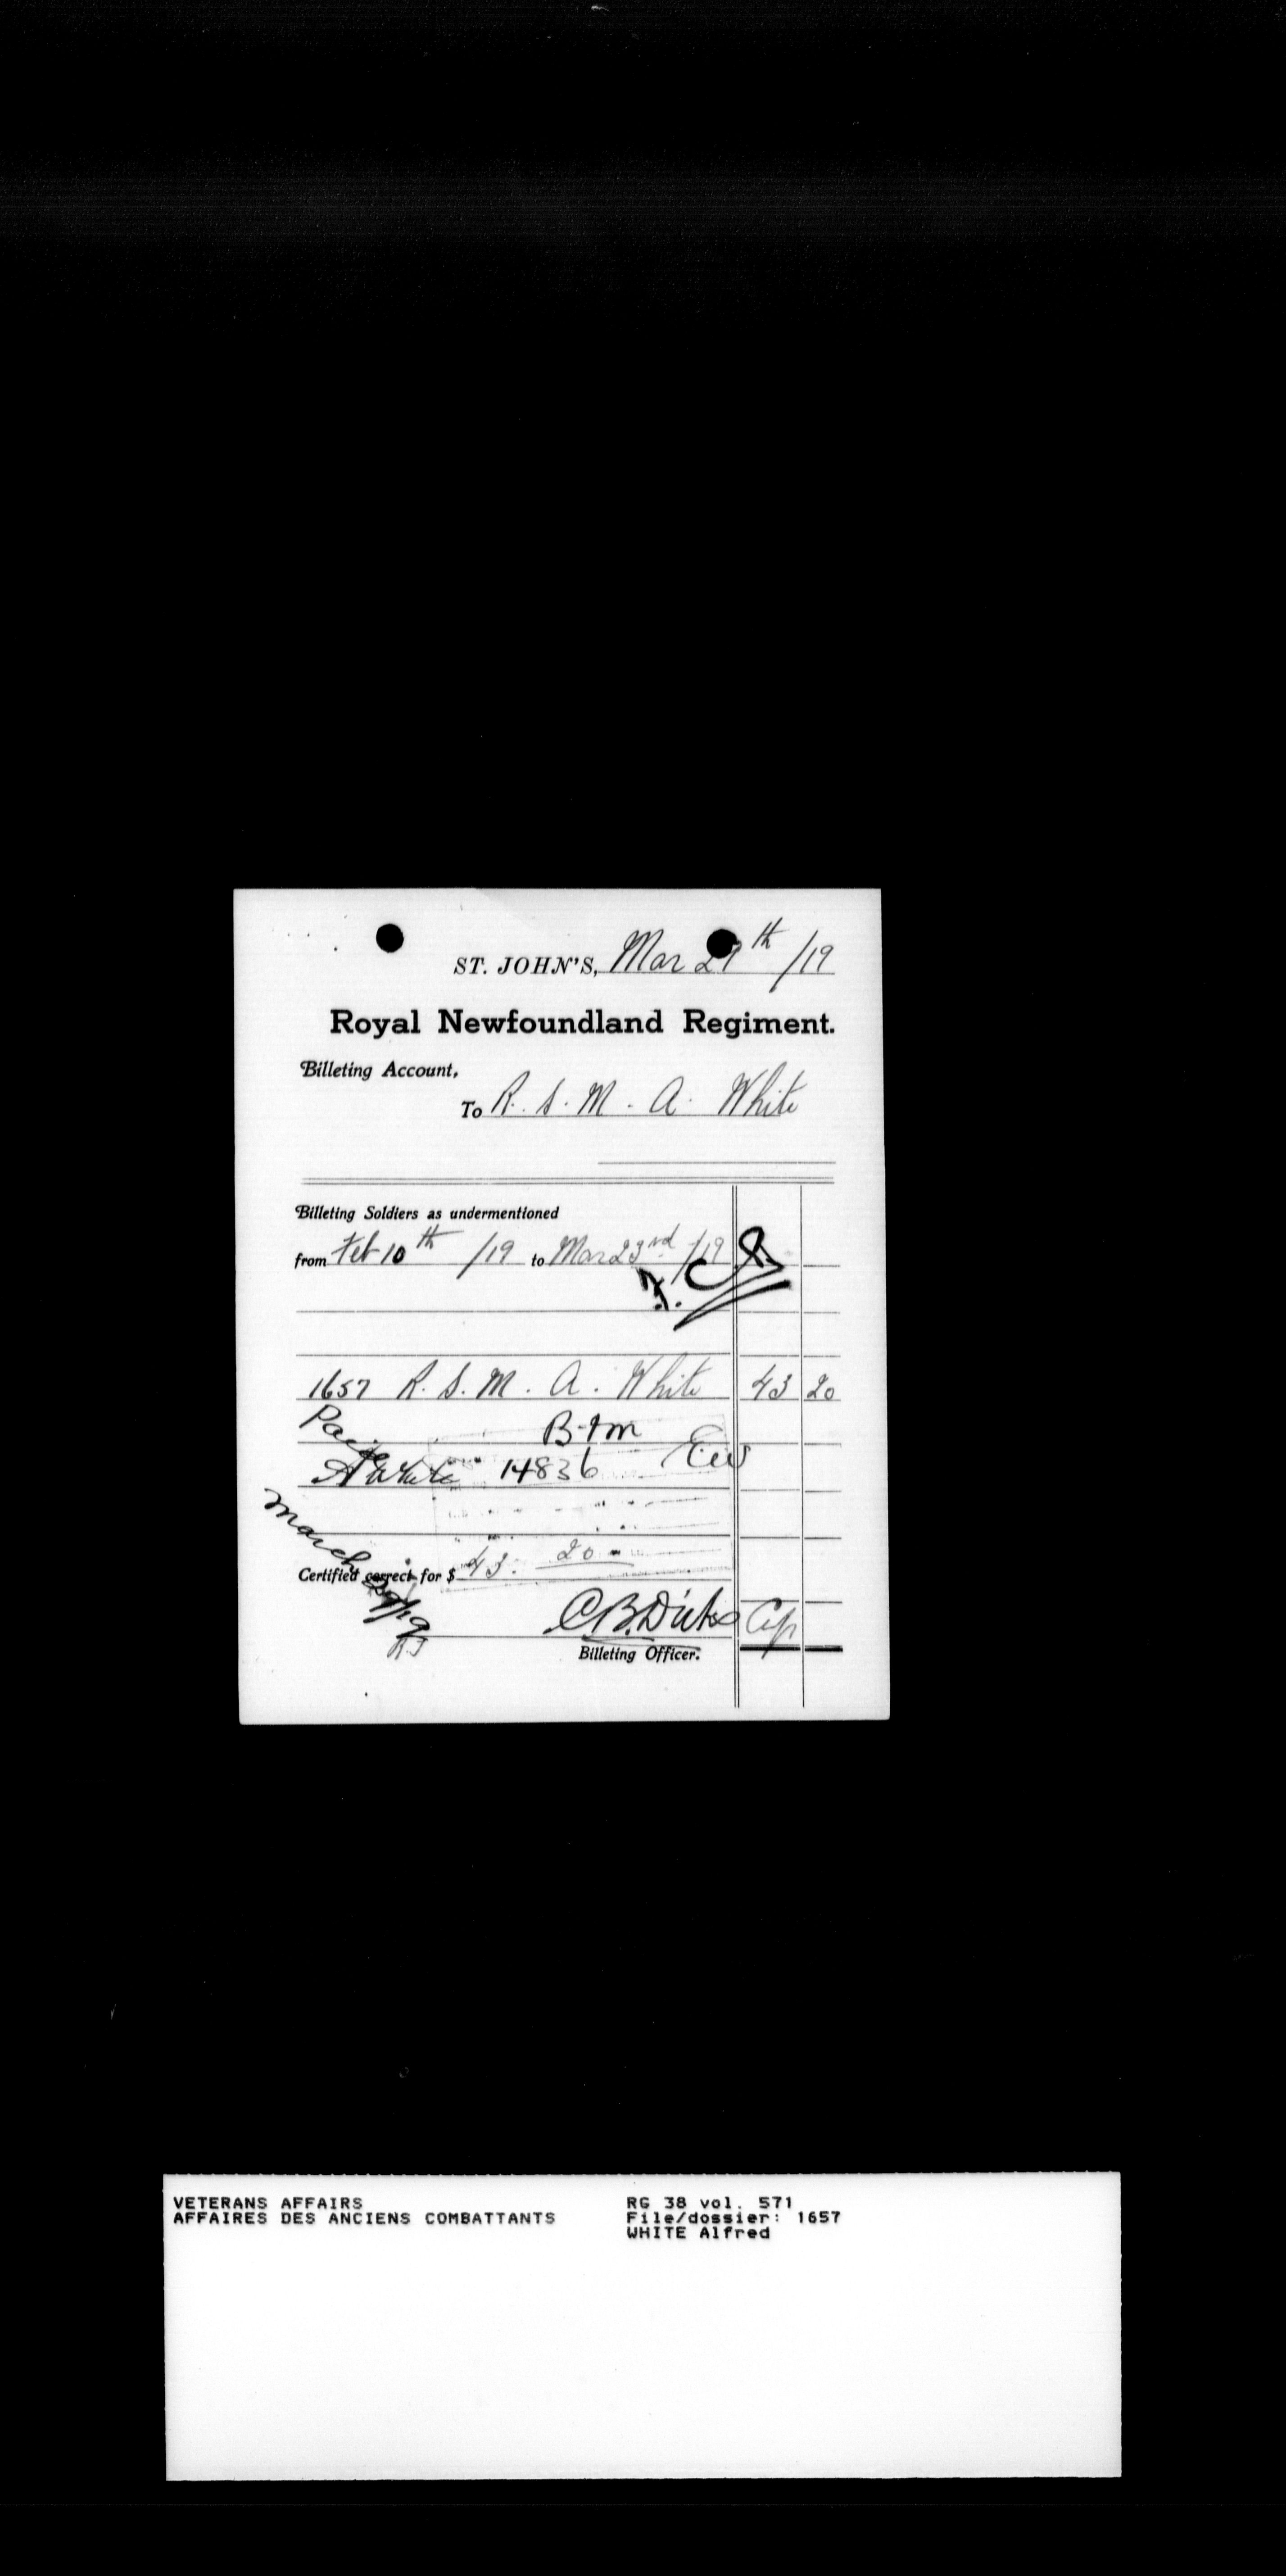 ST. JOHN'S, Mar 29th /19
Royal Newfoundland Regiment.
Billeting Account,
To R. S. M. A. White
Billeting Soldiers as undermentioned
from Feb 10th /19 to Mar 23rd /19
1657 R. S. M. A. White 43 20
Paid
A White 14836
March 29/19
Certified correct for $ 43. 20
C.B. Dicks
Billeting Officer.
VETERANS AFFAIRS
AFFAIRES DES ANCIENS COMBATTANTS
RG 38 vol. 571
File/dossier: 1657
WHITE Alfred